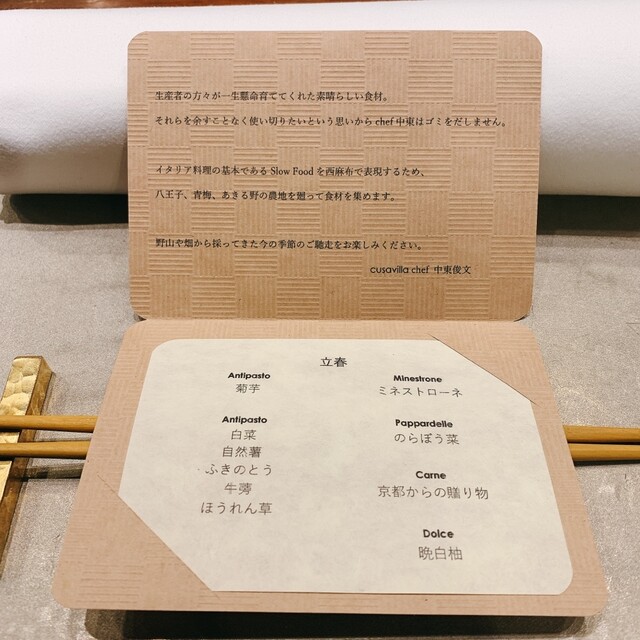 生産者の方々が一生懸命育ててくれた素晴らしい食材。
それらを余すことなく使い切りたいという思いから chef 中東はゴミをだしません。
イタリア料理の基本である Slow Food を西麻布で表現するため、
八王子、青梅、あきる野の農地を廻って食材を集めます。
野山や畑から採ってきた今の季節のご馳走をお楽しみください。
cusavilla chef 中東俊文
立春
Antipasto
菊芋
Antipasto
白菜
自然薯
ふきのとう
牛蒡
ほうれん草
Minestrone
ミネストローネ
Pappardelle
のらぼう菜
Carne
京都からの贈り物
Dolce
晩白柚